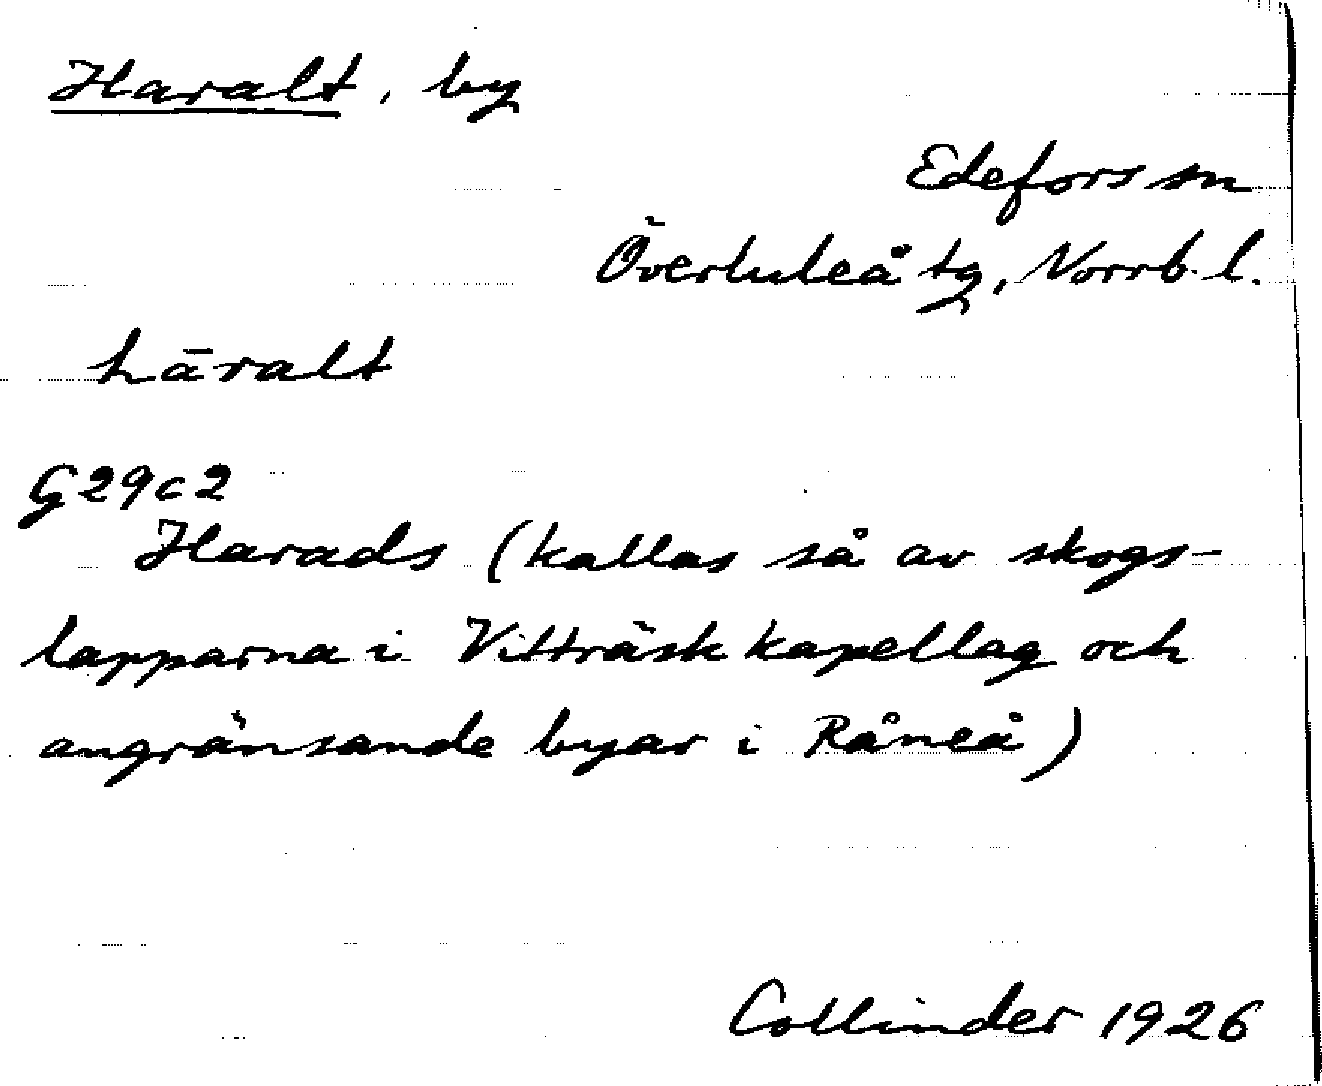 Haralt, by
Edefors sn
Överluleå tg, Norrb. l.
hāralt
G29c2
Harads (kallas så av skogs-
lapparna i Vitträsk kapellag och
angränsande byar i Råneå)
Collinder 1926